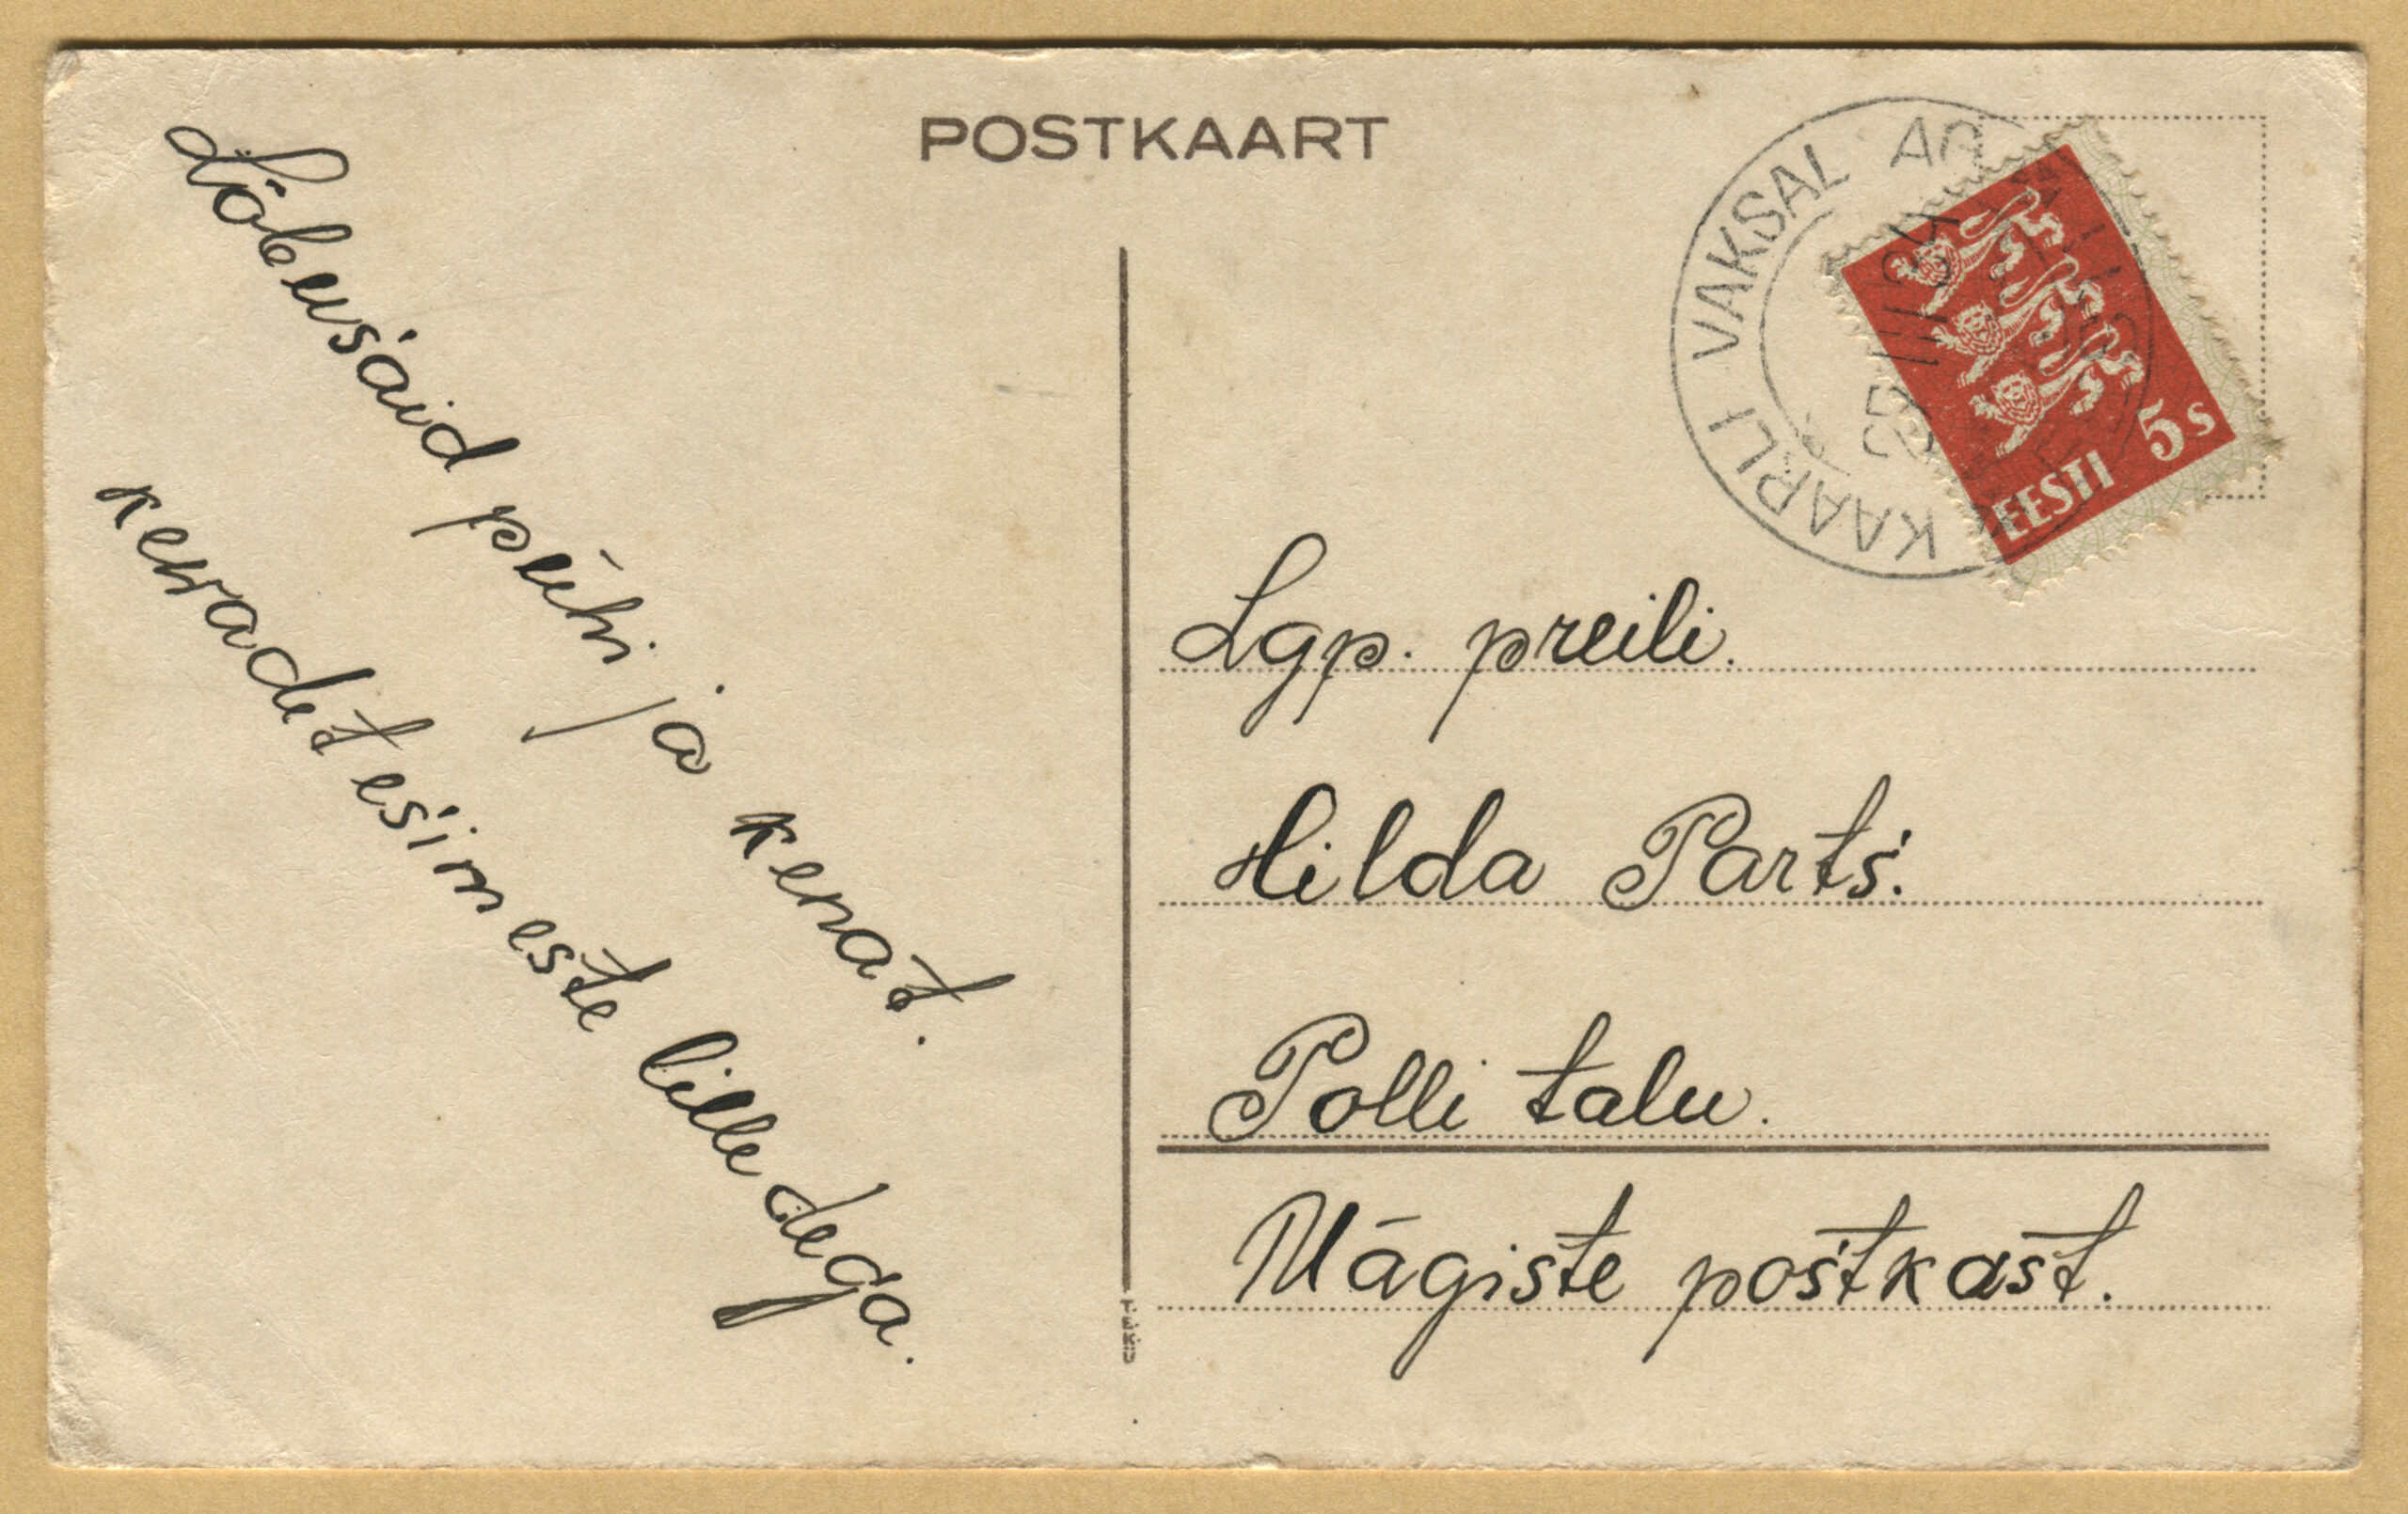 POSTKAART
Lõbusaid pühi ja kenat.
kevadet esimeste lilledega.
KAARLI VAKSAL AG
EESTI 5s
Lgp. preili.
Hilda Parts.
Polli talu.
Mägiste postkast.